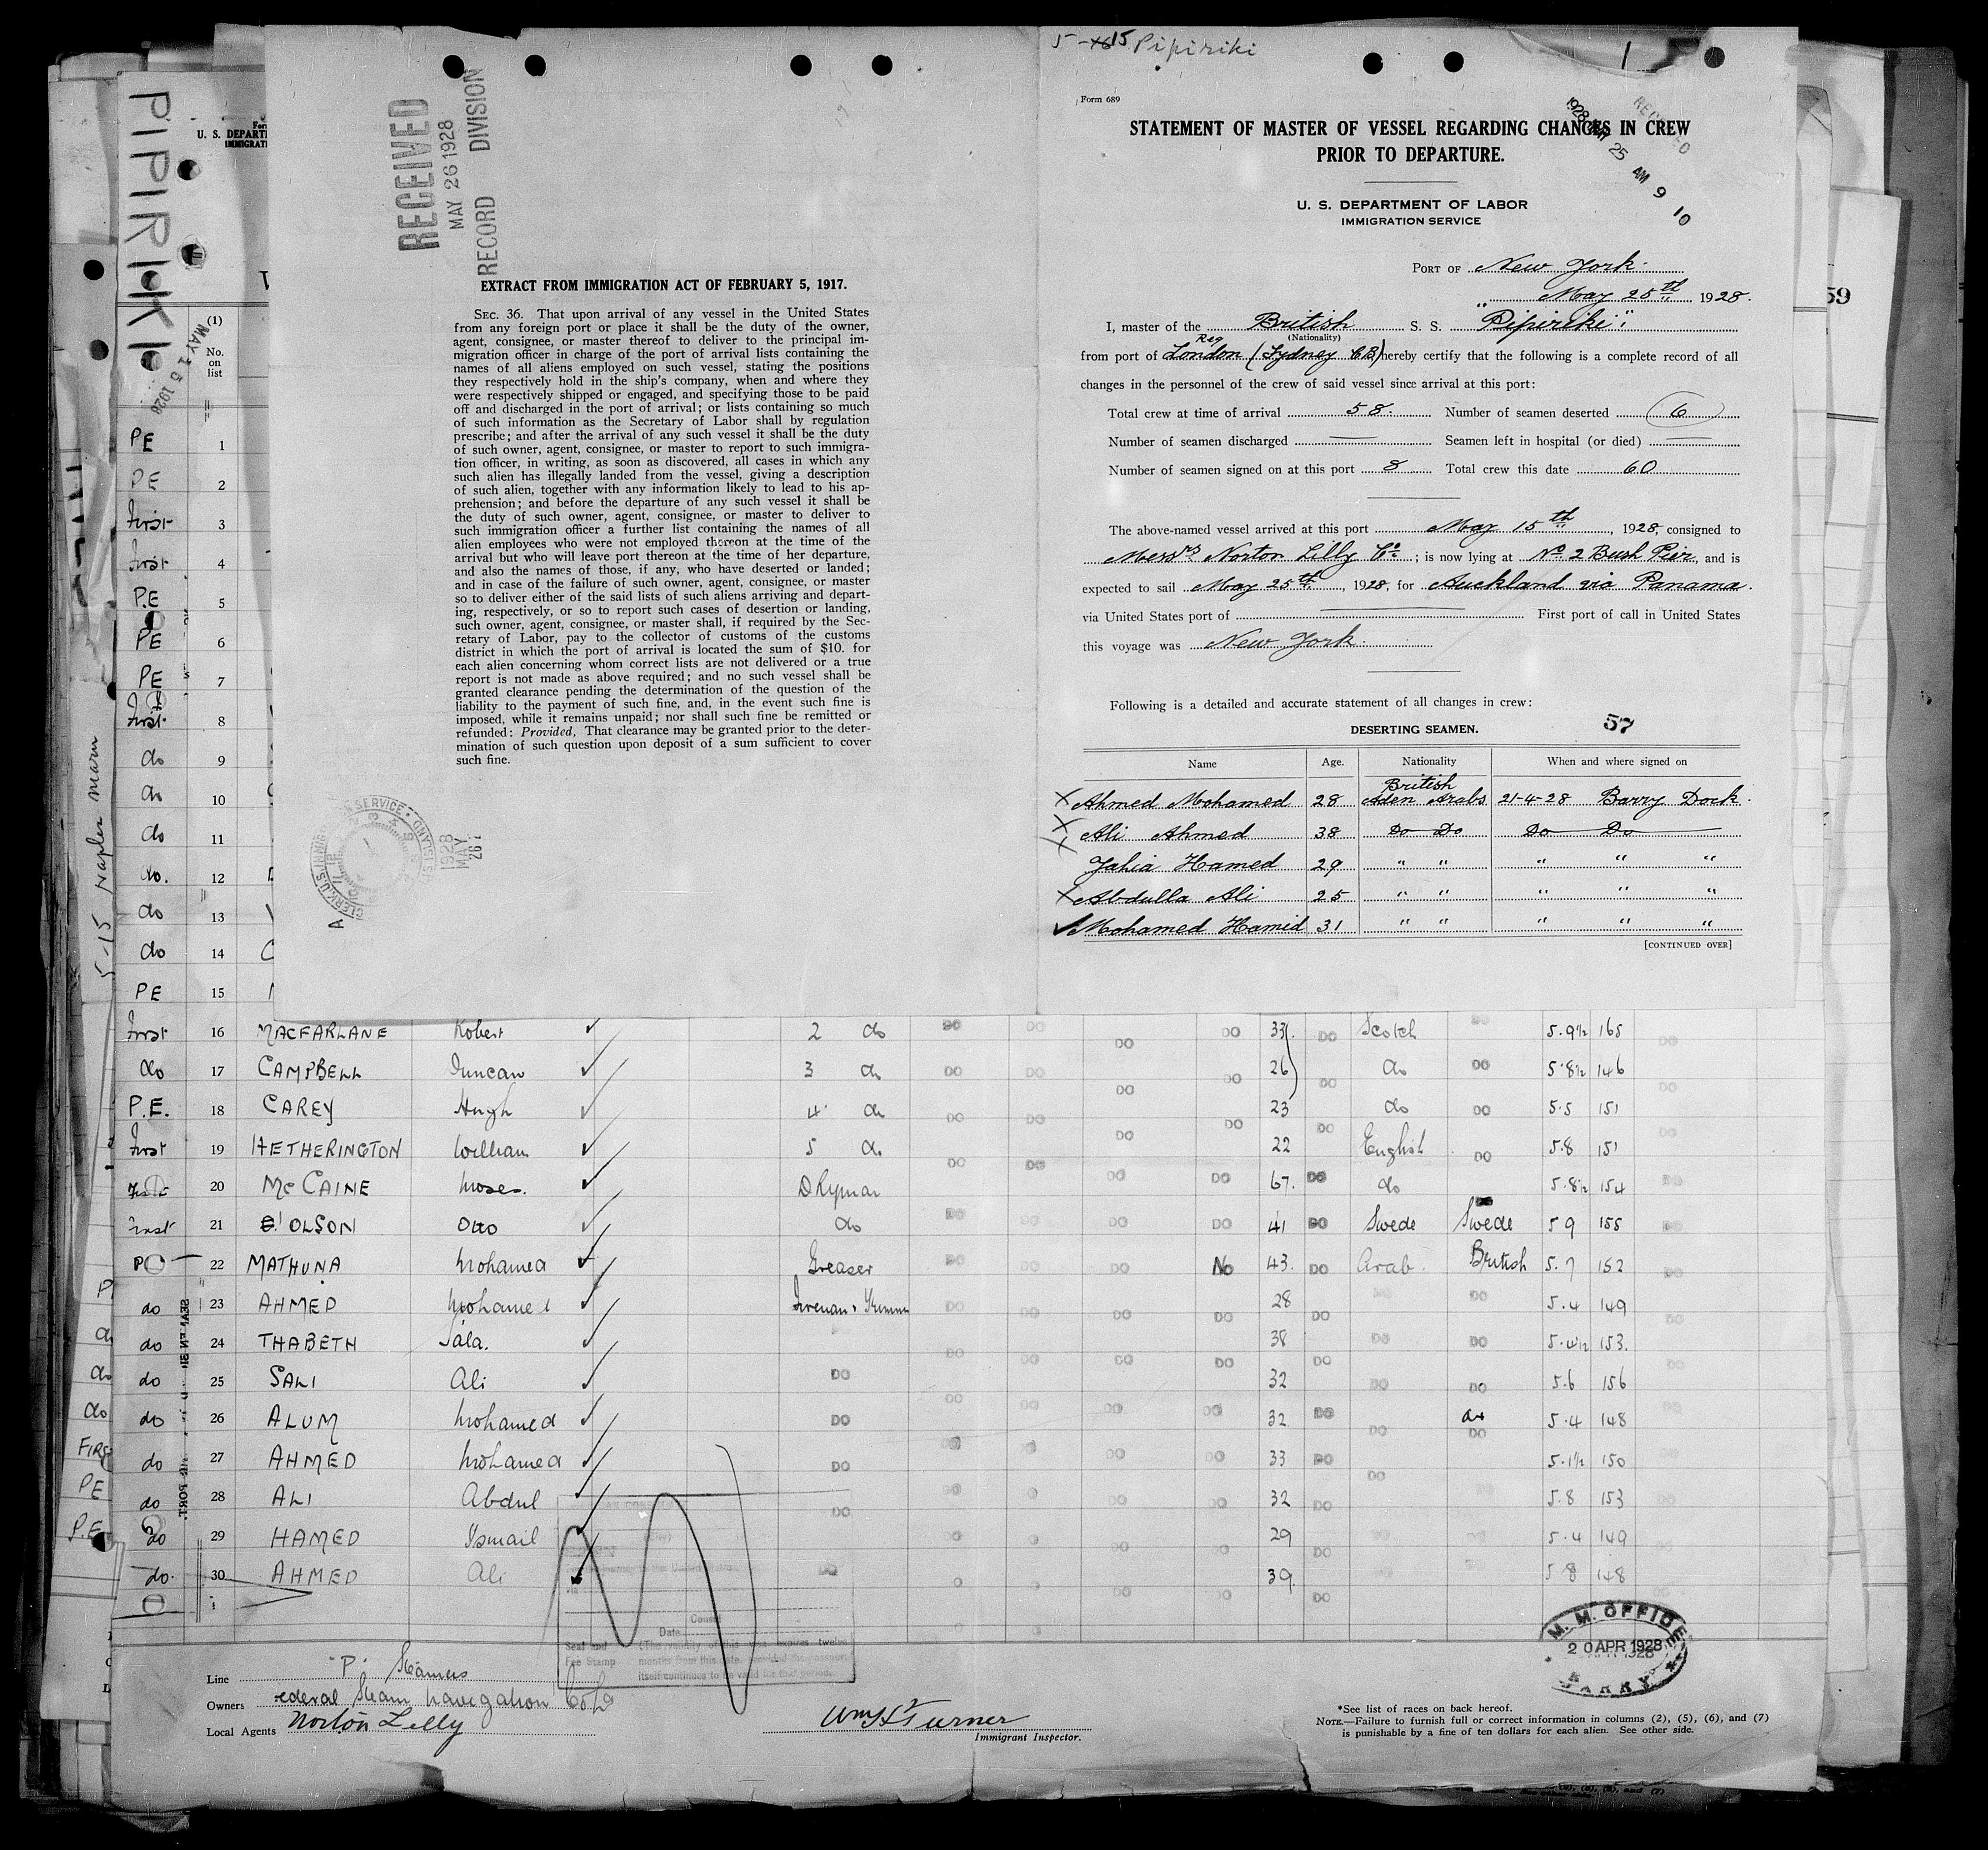 5-15 Pipiriki
1
RECEIVED
MAY 26 1928
RECORD DIVISION
EXTRACT FROM IMMIGRATION ACT OF FEBRUARY 5, 1917.
SEC. 36. That upon arrival of any vessel in the United States
from any foreign port or place it shall be the duty of the owner,
agent, consignee, or master thereof to deliver to the principal im-
migration officer in charge of the port of arrival lists containing the
names of all aliens employed on such vessel, stating the positions
they respectively hold in the ship's company, when and where they
were respectively shipped or engaged, and specifying those to be paid
off and discharged in the port of arrival; or lists containing so much
of such information as the Secretary of Labor shall by regulation
prescribe; and after the arrival of any such vessel it shall be the duty
of such owner, agent, consignee, or master to report to such immigra-
tion officer, in writing, as soon as discovered, all cases in which any
such alien has illegally landed from the vessel, giving a description
of such alien, together with any information likely to lead to his ap-
prehension; and before the departure of any such vessel it shall be
the duty of such owner, agent, consignee, or master to deliver to
such immigration officer a further list containing the names of all
alien employees who were not employed thereon at the time of the
arrival but who will leave port thereon at the time of her departure,
and also the names of those, if any, who have deserted or landed;
and in case of the failure of such owner, agent, consignee, or master
so to deliver either of the said lists of such aliens arriving and depart-
ing, respectively, or so to report such cases of desertion or landing,
such owner, agent, consignee, or master shall, if required by the Sec-
retary of Labor, pay to the collector of customs of the customs
district in which the port of arrival is located the sum of $10. for
each alien concerning whom correct lists are not delivered or a true
report is not made as above required; and no such vessel shall be
granted clearance pending the determination of the question of the
liability to the payment of such fine, and, in the event such fine is
imposed, while it remains unpaid; nor shall such fine be remitted or
refunded: Provided, That clearance may be granted prior to the deter-
mination of such question upon deposit of a sum sufficient to cover
such fine.
1928
MAY
26
Form 689
RECEIVED
1928 MAY 25 AM 9 10
STATEMENT OF MASTER OF VESSEL REGARDING CHANGES IN CREW
PRIOR TO DEPARTURE.
U. S. DEPARTMENT OF LABOR
IMMIGRATION SERVICE
PORT OF New York.
" May 25th 1928.
I, master of the British S. S. "Pipiriki"
(Nationality)
Reg
from port of London (Sydney CB) hereby certify that the following is a complete record of all
changes in the personnel of the crew of said vessel since arrival at this port:
Total crew at time of arrival 58. Number of seamen deserted 6
Number of seamen discharged — Seamen left in hospital (or died) —
Number of seamen signed on at this port 8 Total crew this date 60
The above-named vessel arrived at this port May 15th, 1928, consigned to
Messrs Norton Lilly Co; is now lying at No 2 Bush Pier, and is
expected to sail May 25th, 1928, for Auckland via Panama.
via United States port of — First port of call in United States
this voyage was New York.
Following is a detailed and accurate statement of all changes in crew:
DESERTING SEAMEN. 57
Name Age. Nationality When and where signed on
British
X Ahmed Mohamed 28 Aden Arabs 21-4-28 Barry Dock.
X Ali Ahmed 38 Do Do Do Do
X Jahia Hamed 29 " " " " "
X Abdulla Ali 25 " " " " "
✓ Mohamed Hamid 31 " " " " "
[CONTINUED OVER]
PIPIRIKI
U. S. DEPART
IMMIGRAT
(1)
No.
on
list
MAY 15 1928
59
5-15 Naples maru
PE 1
PE 2
First 3
First 4
P.E 5
PE 6
PE 7
First 8
do 9
do 10
do 11
do. 12
do 13
do 14
PE 15
First 16 MACFARLANE Robert ✓ 2 do DO DO DO DO 33 DO Scotch DO 5.9½ 165 DO
do 17 CAMPBELL Duncan ✓ 3 do DO DO DO DO 26 DO do DO 5.8½ 146 DO
P.E. 18 CAREY Hugh ✓ 4 do DO DO DO DO 23 DO do DO 5.5 151 DO
First 19 HETHERINGTON William ✓ 5 do DO DO DO DO 22 English DO 5.8 151
20 McCAINE Moses. ✓ DKyman DO DO 67. DO do 5.8½ 154 DO
First 21 OLSON Otto ✓ do DO DO DO DO 41 DO Swede Swede 5 9 155 DO
P 22 MATHUNA Mohamed ✓ Greaser DO DO DO No 43. DO Arab British 5.7 152 DO
do 23 AHMED Mohamed ✓ DO DO DO DO 28 DO DO 5.4 149
do 24 THABETH Sala. ✓ DO DO DO DO 38 DO DO DO 5.4½ 153.
do 25 SALI Ali ✓ DO 32 DO DO 5.6 156
do 26 ALUM Mohamed ✓ DO DO DO DO DO 32 DO DO DO 5.4 148
do 27 AHMED Mohamed ✓ DO DO DO 33 DO DO 5.1½ 150
do 28 ALI Abdul ✓ DO DO DO 32 DO 5.8 153
do 29 HAMED Ismail DO DO 29 DO 5.4 149
do. 30 AHMED Ali ✓ DO DO DO 39. DO 5 8 148
Consul
Date
Seal and
Fee Stamp
months from this date, provided the passport
itself continues to be valid for that period.
Line "P" Steamers
Owners Federal Steam Navigation Co Ld
Local Agents Norton Lilly
Wm H Turner
Immigrant Inspector.
M. M. OFFICE
20 APR 1928
BARRY
*See list of races on back hereof.
NOTE.—Failure to furnish full or correct information in columns (2), (5), (6), and (7)
is punishable by a fine of ten dollars for each alien. See other side.